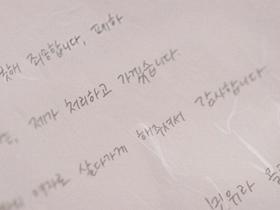 죄송합니다, 폐하
제가 처리하고 가겠습니다.
여자로 살다가게 해주셔서 감사합니다